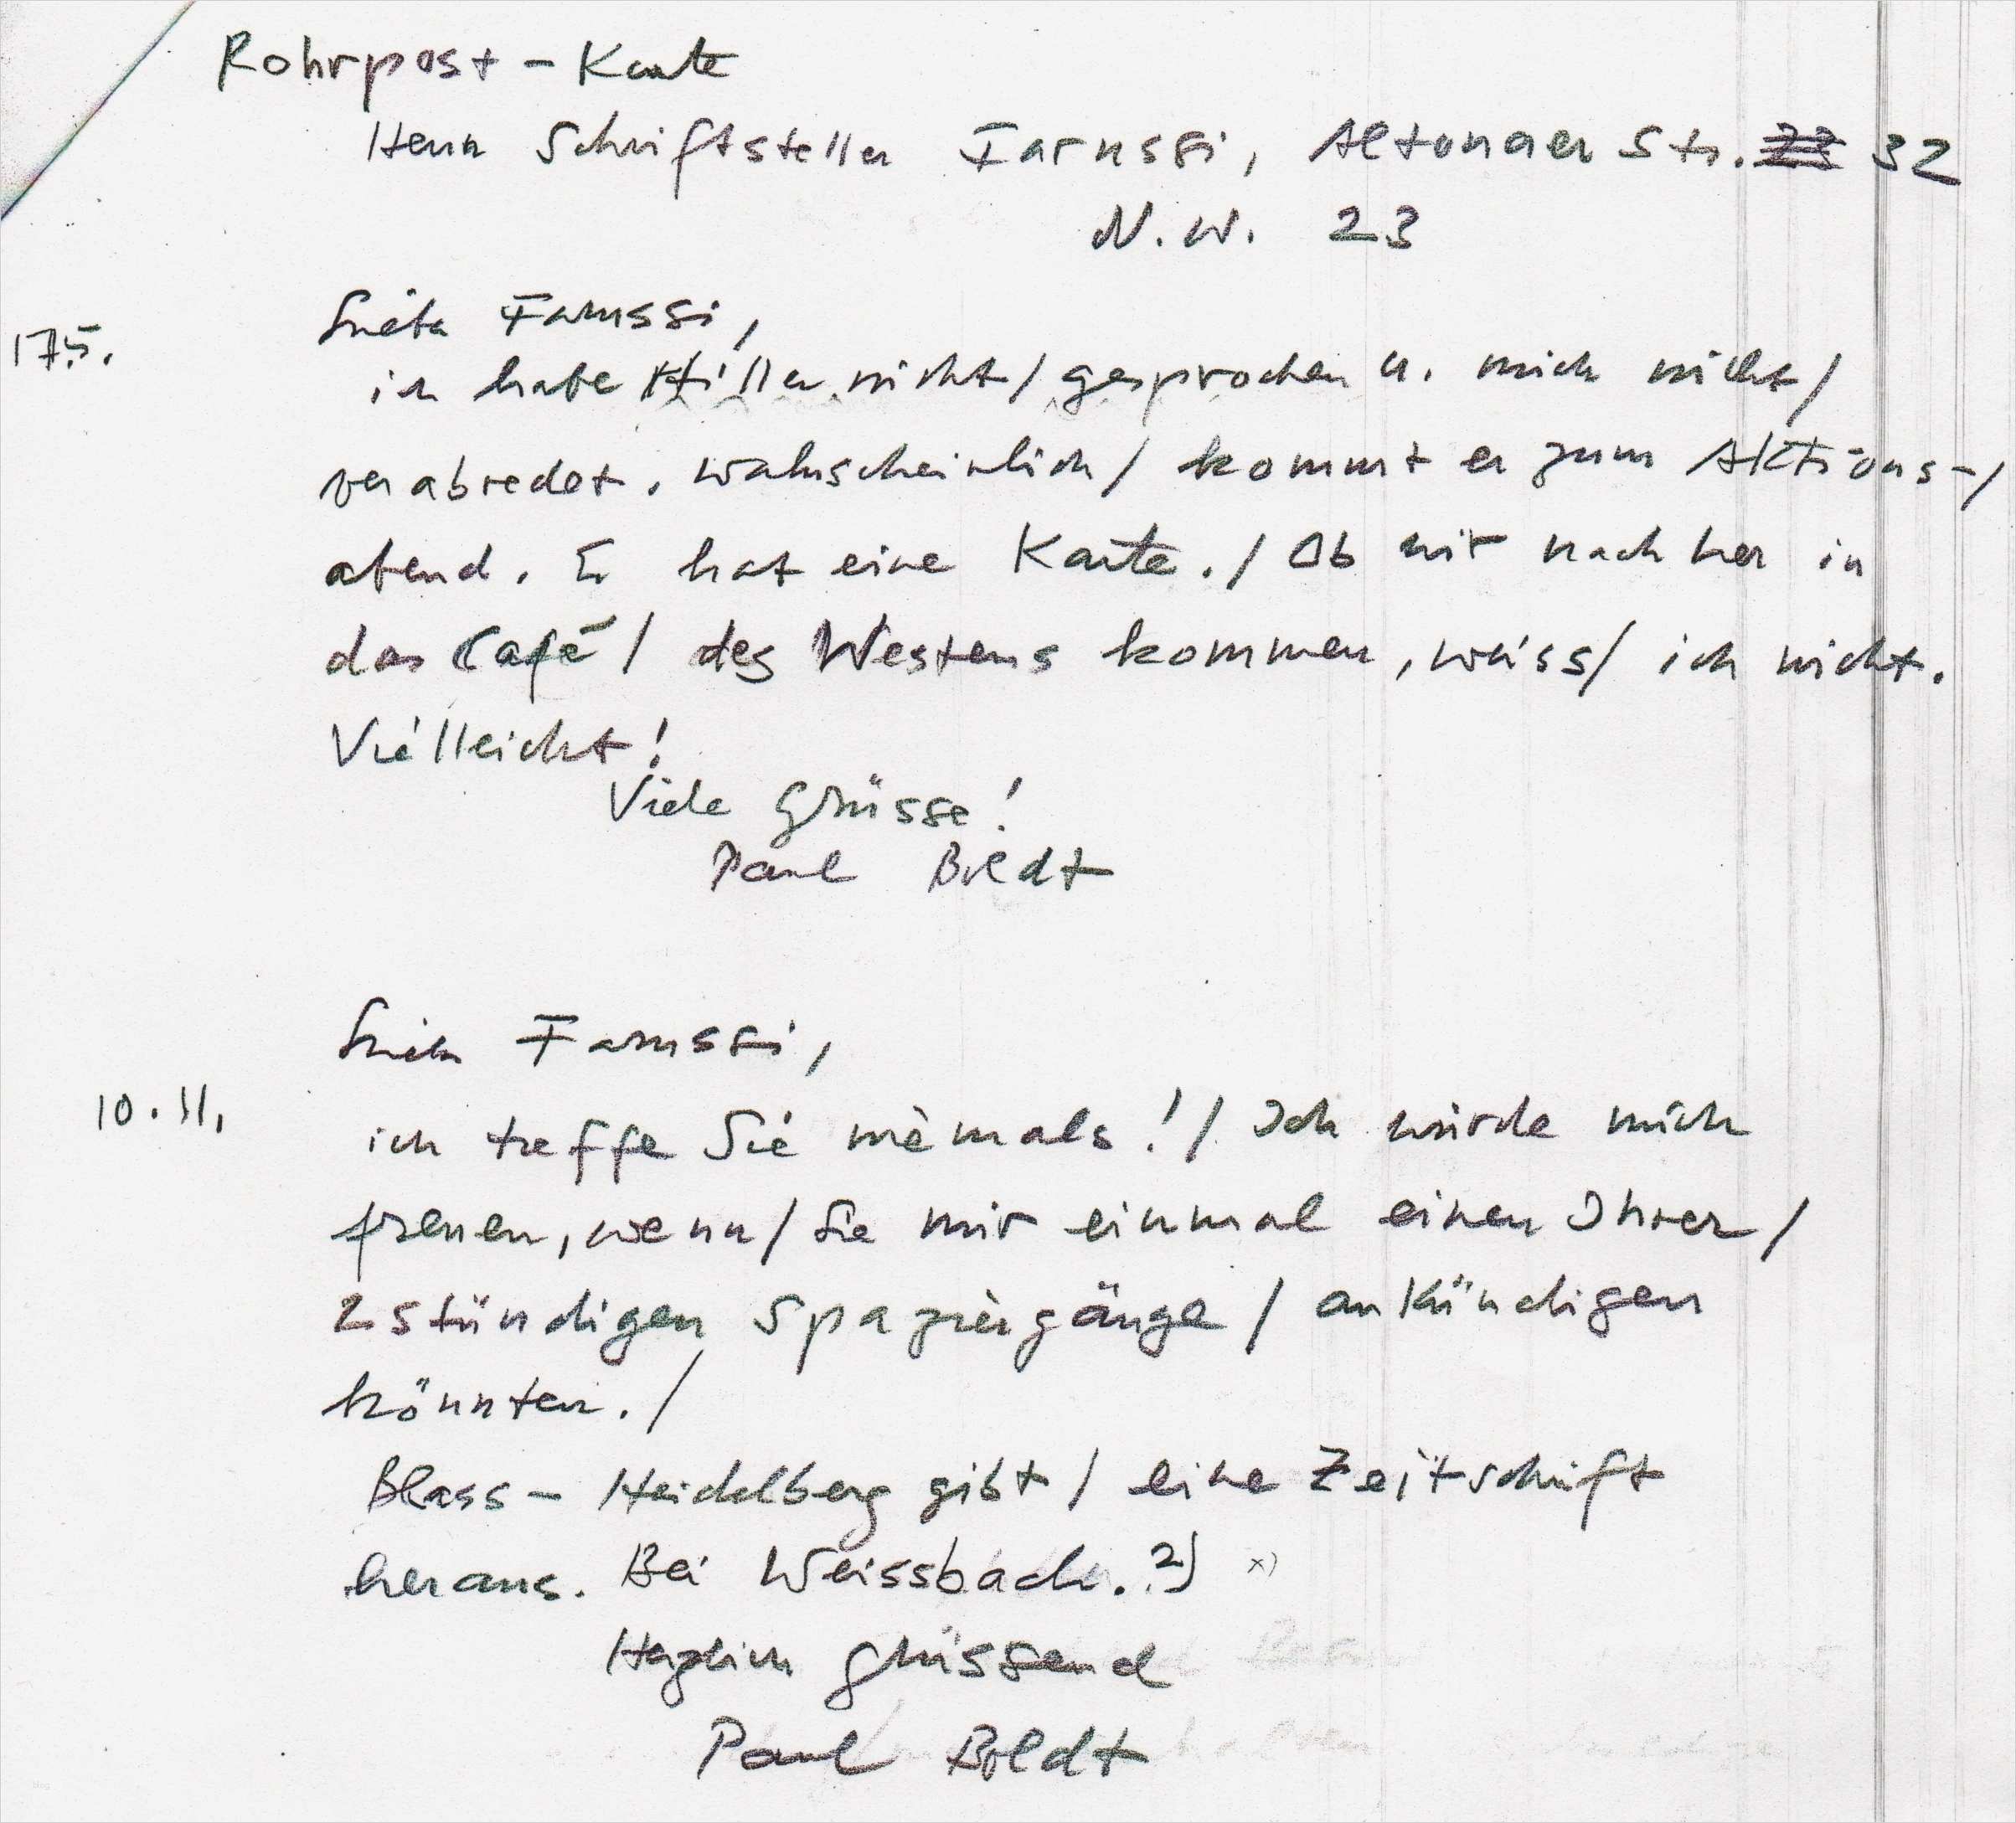 Rohrpost-Karte
Herrn Schriftsteller Farussi, Altonaer Str. 32
N.W. 23
Lieber Farussi,
17.5.
ich habe Hiller nicht/ gesprochen u. mich nicht/
verabredet. Wahrscheinlich/ kommt er zum Aktions-/
abend. Er hat eine Karte./ Ob wir nachher in
das Café/ des Westens kommen, weiss/ ich nicht.
Vielleicht!
Viele Grüsse!
Paul Boldt
Lieber Farussi,
10.11.
ich treffe Sie niemals!/ Ich würde mich
freuen, wenn/ Sie mir einmal einen Ihrer/
2stündigen Spaziergänge/ ankündigen
könnten./
Blass-Heidelberg gibt/ eine Zeitschrift
heraus. Bei Weissbach. 2) x)
Herzlich grüssend
Paul Boldt